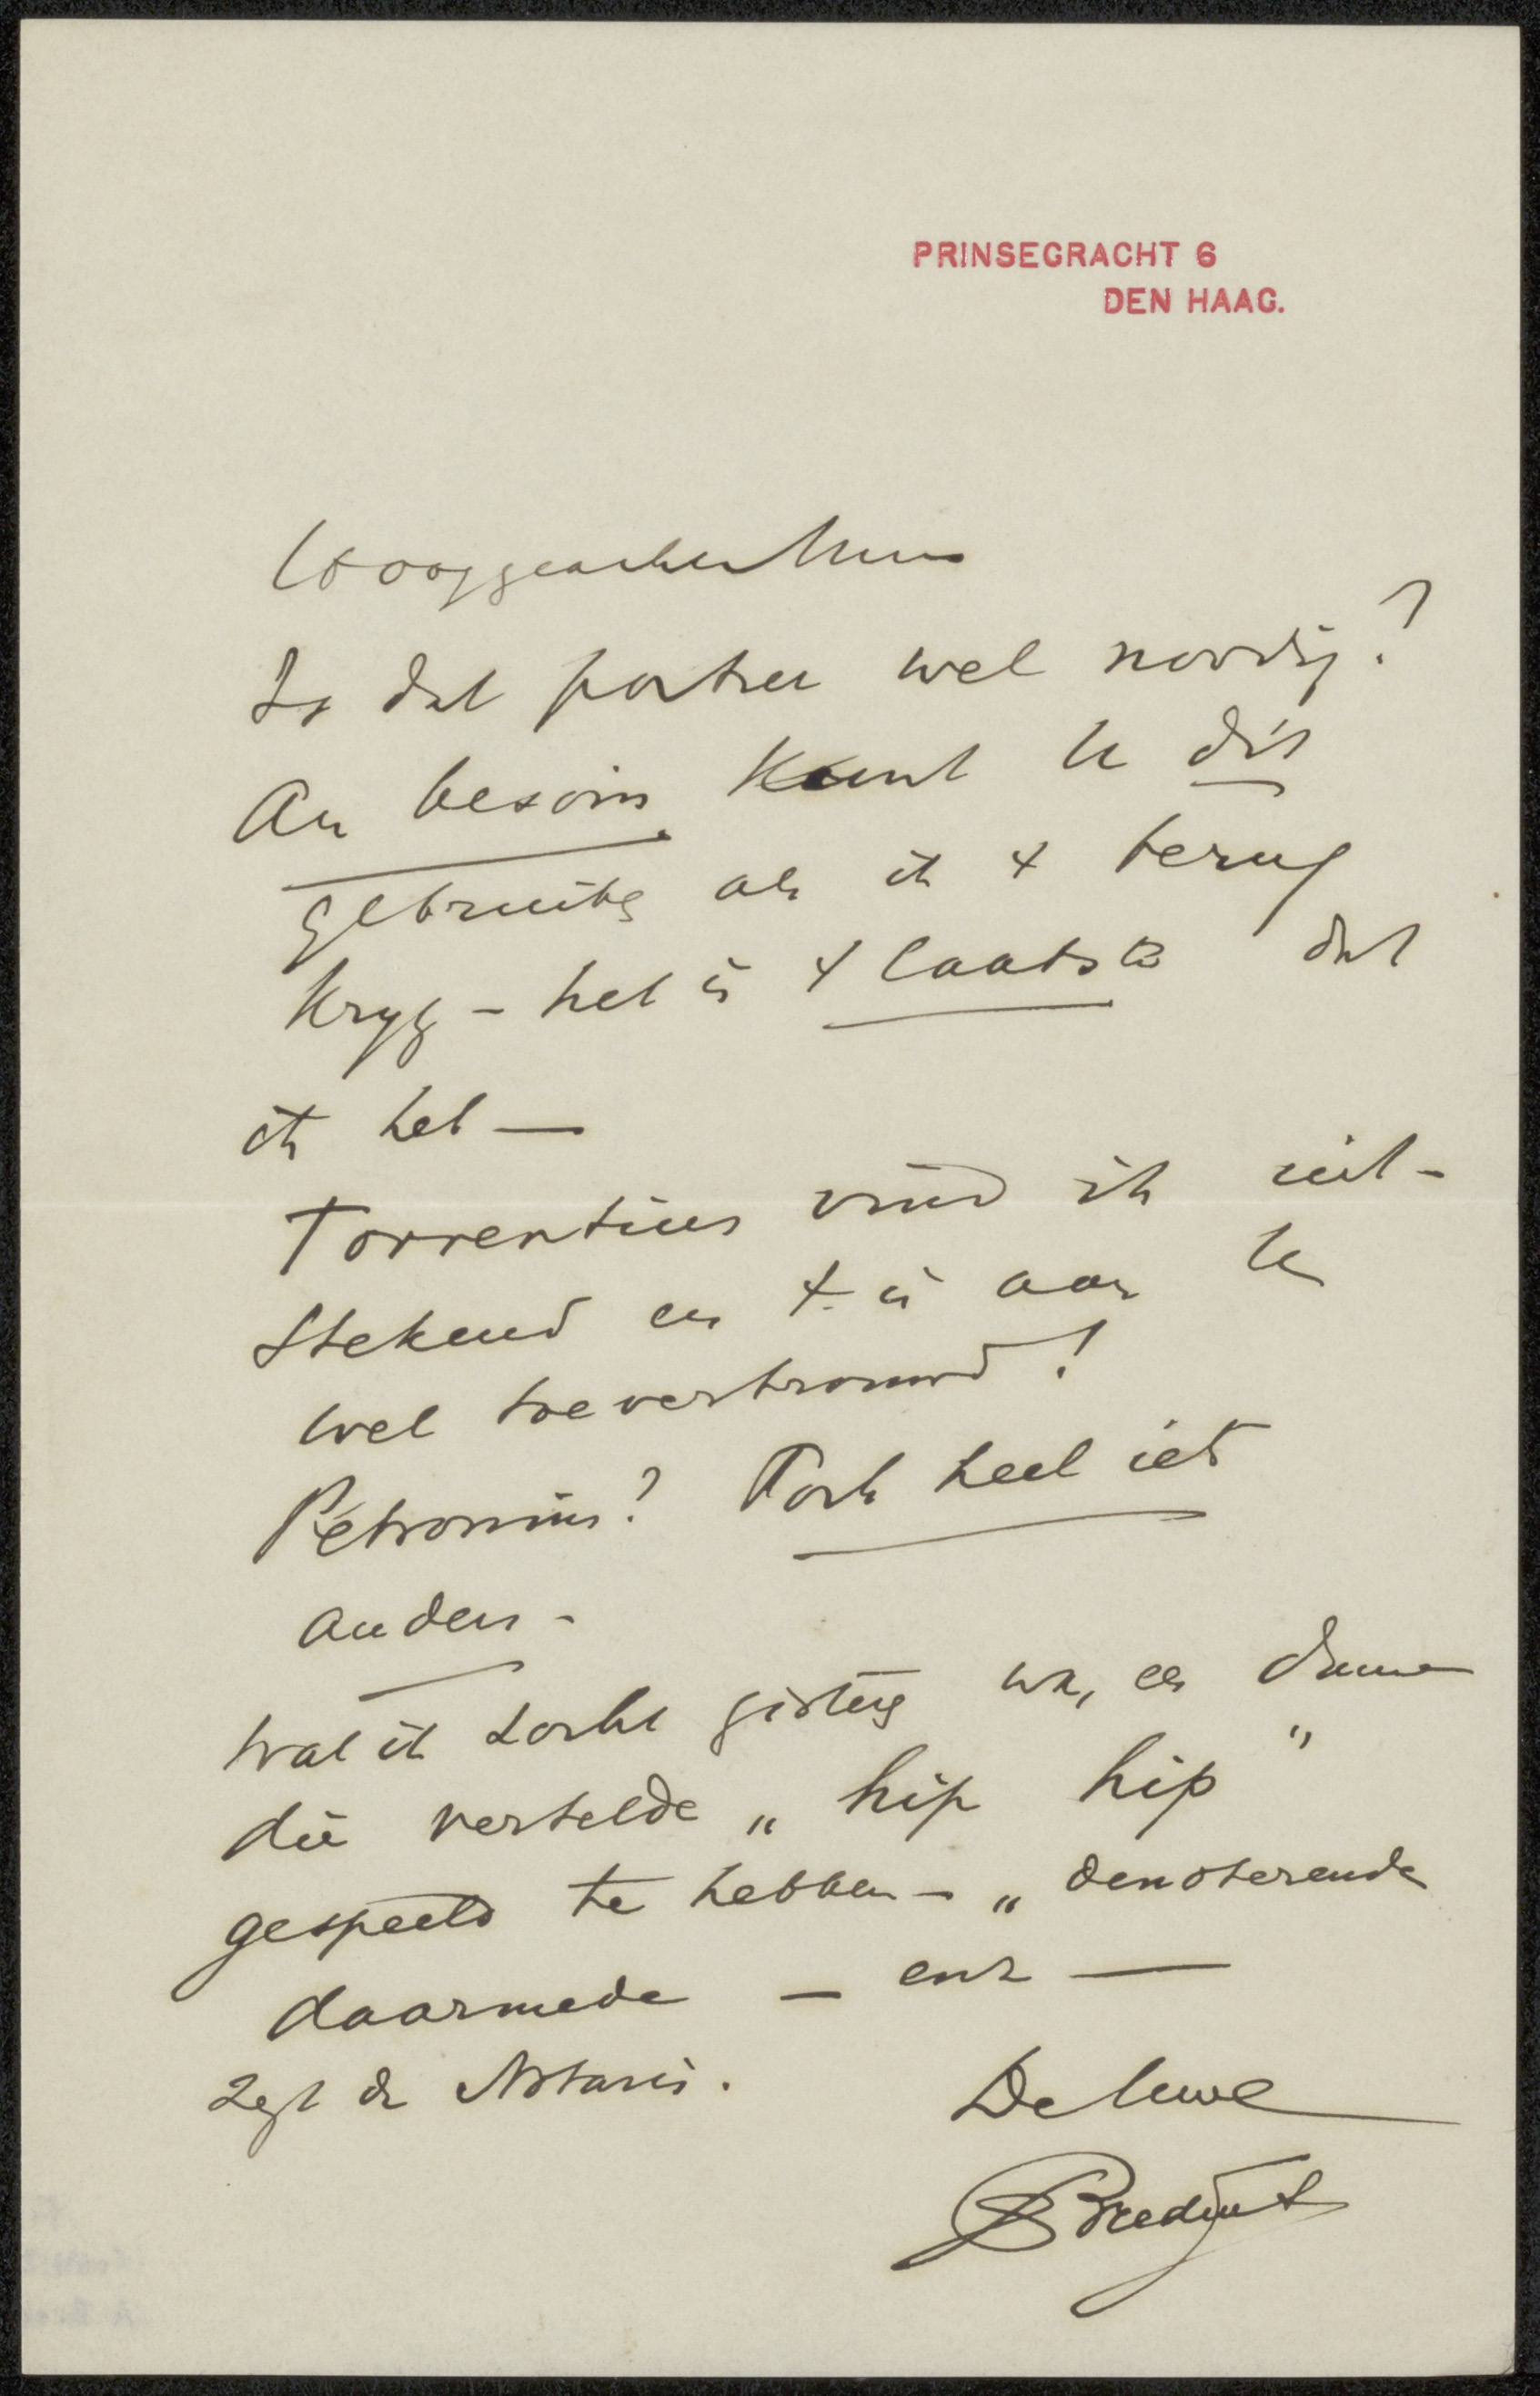 PRINSEGRACHT 6
DEN HAAG.
Hooggeachte Heer
Is dat portret wel noodig?
Au besoin kunt U dit
gebruiken als ik 't terug
kryg - het is 't laatste dat
ik heb —
Torrentius vind ik uit-
stekend en 't is aan U
wel toevertrouwd!
Petronius? Toch heel iets
anders -
Wat ik zocht gisteren was, een dame
die vertelde „ hip hip "
gespeeld te hebben - „ denoterende
daarmede — enz —
zegt de Notaris.
De Uwe
A Bredius